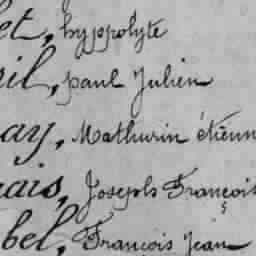 et, hyppolyte
il, paul Julien
ay, Mathurin étienn
ais, Joseph François
bel, François Jean